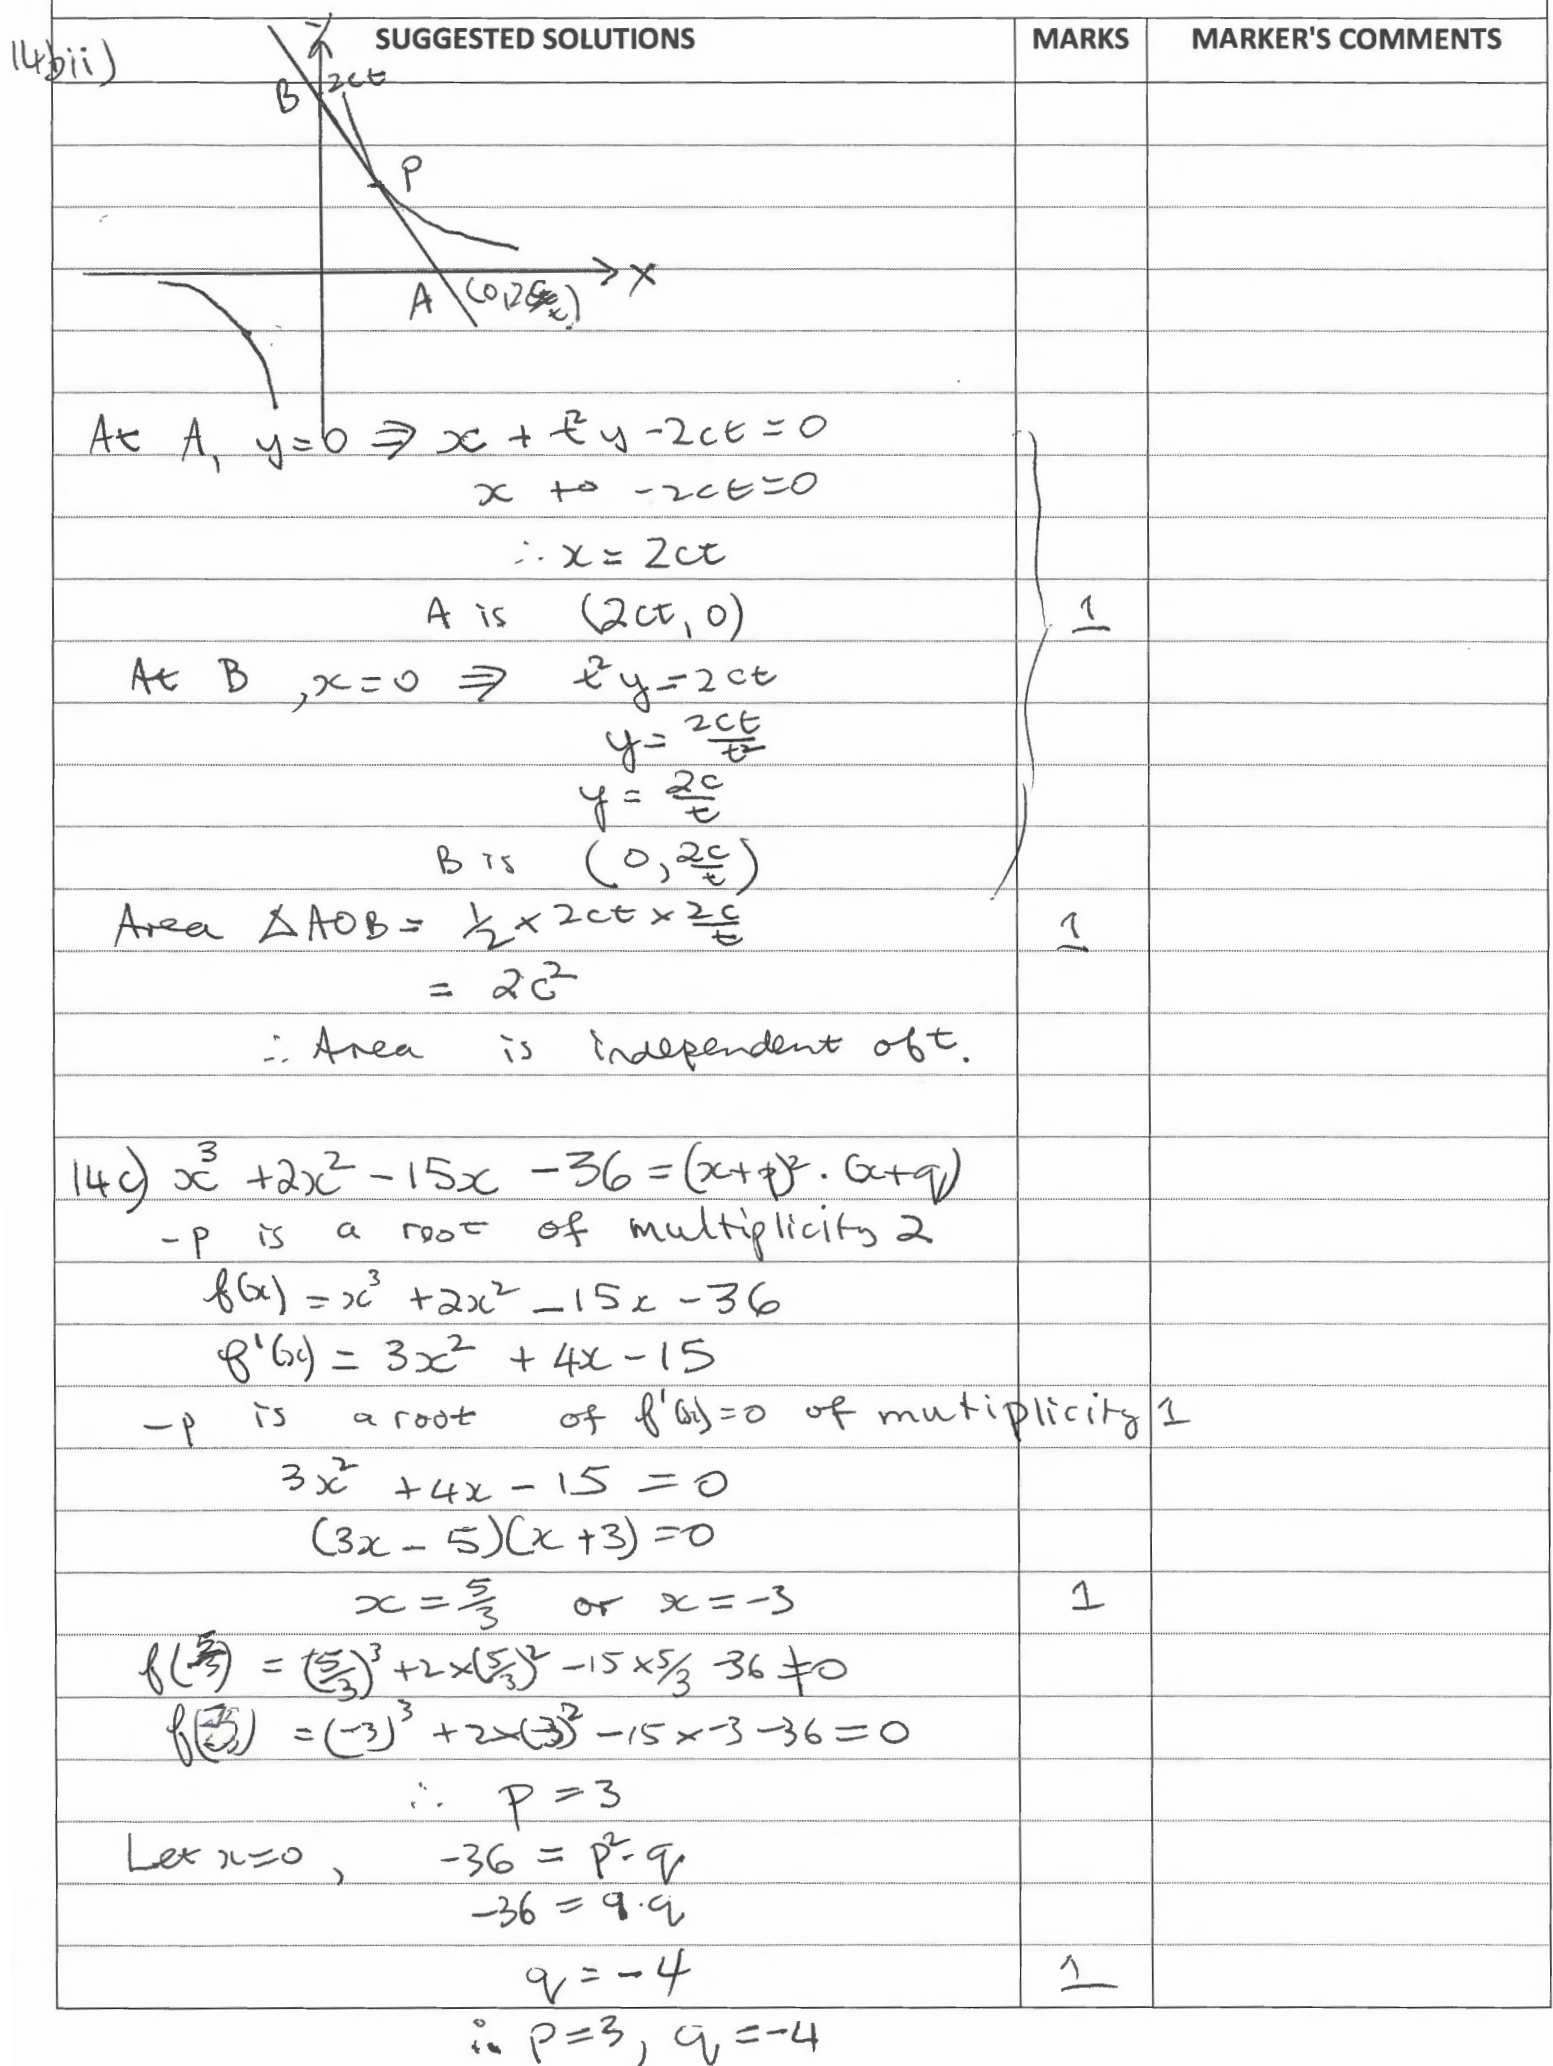 SUGGESTED SOLUTIONS MARKS MARKER'S COMMENTS
14bii)
y
B 2ct
P
x
A (0,2
At A, y=0 ⇒ x + t²y - 2ct = 0
x + 0 - 2ct = 0
∴ x = 2ct
A is (2ct, 0) 1
At B, x=0 ⇒ t²y = 2ct
y = 2ct/t²
y = 2c/t
B is (0, 2c/t)
Area △AOB = 1/2 × 2ct × 2c/t 1
= 2c²
∴ Area is independent of t.
14c) x³ + 2x² - 15x - 36 = (x+p)² . (x+q)
-p is a root of multiplicity 2
f(x) = x³ + 2x² - 15x - 36
f'(x) = 3x² + 4x - 15
-p is a root of f'(x)=0 of mutiplicity 1
3x² + 4x - 15 = 0
(3x - 5)(x + 3) = 0
x = 5/3 or x = -3 1
f(5/3) = (5/3)³ + 2×(5/3)² - 15 × 5/3 - 36 ≠ 0
f(-3) = (-3)³ + 2×(-3)² - 15 × -3 - 36 = 0
∴ p = 3
Let x=0, -36 = p² . q
-36 = 9 . q
q = -4 1
∴ p = 3, q = -4